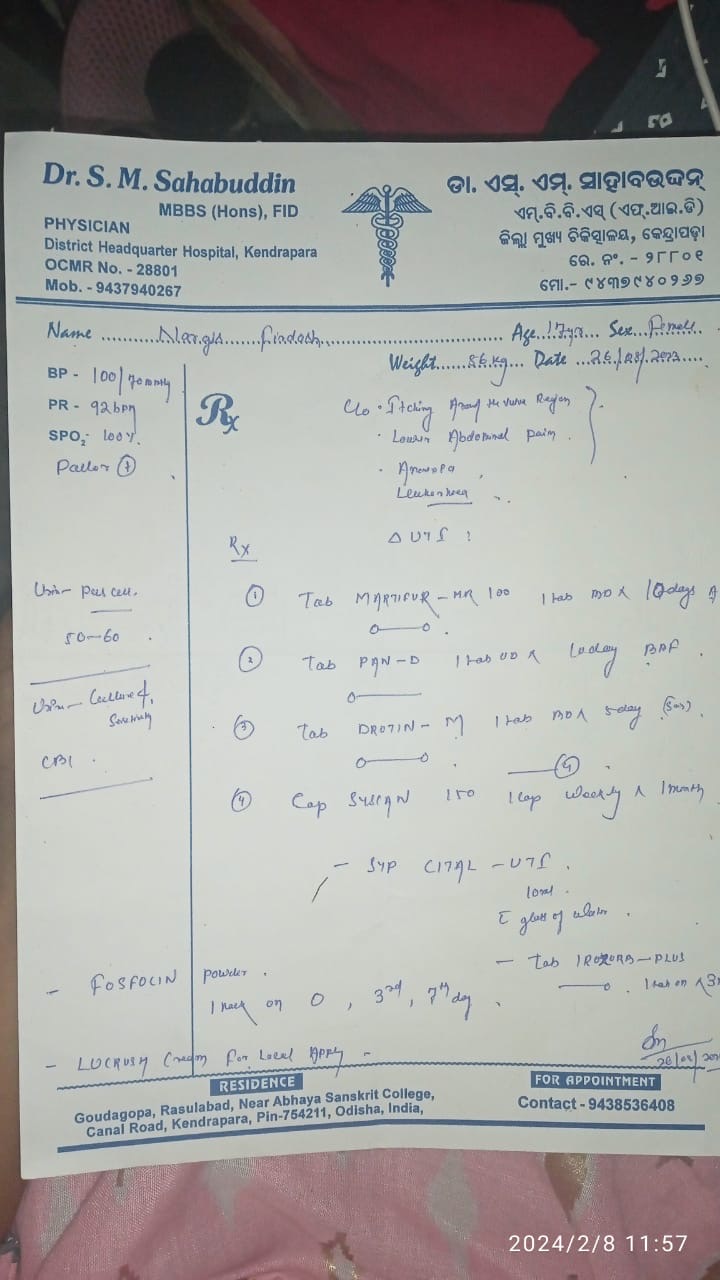 Dr. S. M. Sahabuddin
MBBS (Hons), FID
PHYSICIAN
District Headquarter Hospital, Kendrapara
OCMR No. - 28801
Mob. - 9437940267
ଡା. ଏସ୍. ଏମ୍. ସାହାବଉଦ୍ଦିନ୍
ଏମ୍.ବି.ବି.ଏସ୍ (ଏଫ୍.ଆଇ.ଡି)
ଜିଲ୍ଲା ମୁଖ୍ୟ ଚିକିତ୍ସାଳୟ, କେନ୍ଦ୍ରାପଡ଼ା
ରେ. ନଂ. - ୨୮୮୦୧
ମୋ.- ୯୪୩୭୯୪୦୨୬୭
Name Nargis Firdosh Age 17yrs Sex Female
Weight 56 kg Date
BP - 100/70 mmHg
PR - 92 bpm
SPO2 - 100%
Pallor +
Rx
C/o • Itching Around the vulva Region
• Lower Abdominal pain
•
Leukorrhoea
Δ UTI ?
Rx
Urin - Pus cell.
50-60
Urin - Culture &
CBC
① Tab MARTIFUR - MR 100 1 tab BD X 10 days
② Tab PAN-D 1 tab OD X 10 day BBF
③ Tab DROTIN - M 1 tab BD X 5 day (SOS)
④
④ Cap SYSCAN 150 1 cap weekly X 1 month
- SYP CITAL - UTI
10 ml
c̄ glass of water
- Tab PLUS
- FOSFOCIN powder
1 pack on 0, 3rd, 7th day
- Cream For Local Apply -
RESIDENCE
Goudagopa, Rasulabad, Near Abhaya Sanskrit College,
Canal Road, Kendrapara, Pin-754211, Odisha, India,
FOR APPOINTMENT
Contact - 9438536408
2024/2/8 11:57